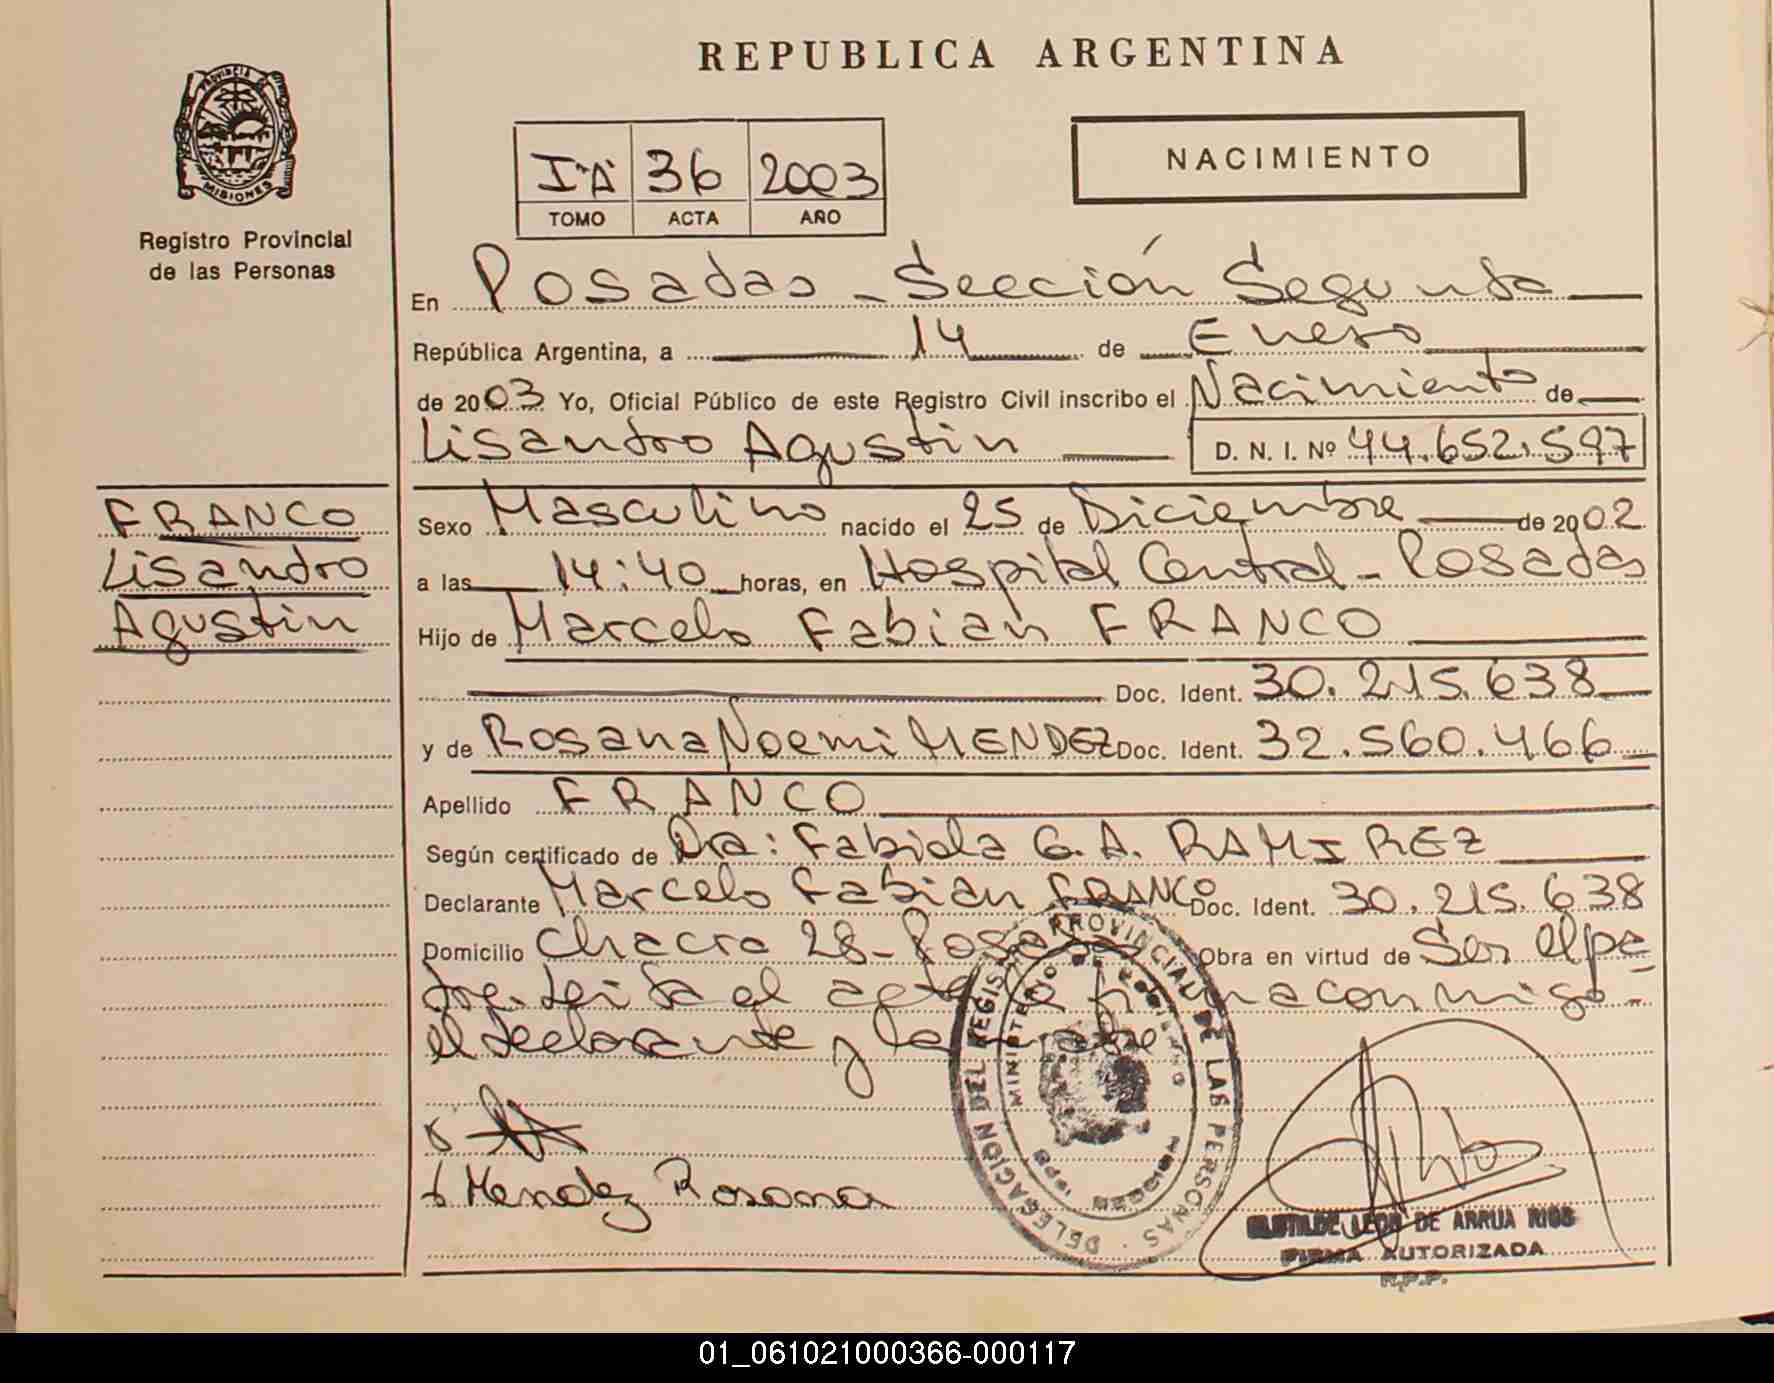 REPUBLICA ARGENTINA
PROVINCIA DE
MISIONES
Registro Provincial
de las Personas
NACIMIENTO
I"A" 36 2003
TOMO ACTA AÑO
En Posadas - Sección Segunda
República Argentina, a 14 de Enero
de 2003 Yo, Oficial Público de este Registro Civil inscribo el Nacimiento de
Lisandro Agustin D. N. I. Nº 44.652.597
FRANCO
Lisandro
Agustin
Sexo Masculino nacido el 25 de Diciembre de 2002
a las 14:40 horas, en Hospital Central - Posadas
Hijo de Marcelo Fabian FRANCO
Doc. Ident. 30.215.638
y de Rosana Noemi MENDEZ Doc. Ident. 32.560.466
Apellido FRANCO
Según certificado de Dra: Fabiola G. A. RAMIREZ
Declarante Marcelo Fabian FRANCO Doc. Ident. 30.215.638
Domicilio Chacra 28 - Posadas Obra en virtud de Ser el pa
dre. Leida el acta la firma conmigo -
el declarante y la madre
Mendez Rosana
DELEGACION DEL REGISTRO PROVINCIAL DE LAS PERSONAS
MINISTERIO DE GOBIERNO
CLOTILDE LEON DE ARRUA RIOS
FIRMA AUTORIZADA
R.P.P.
01_061021000366-000117